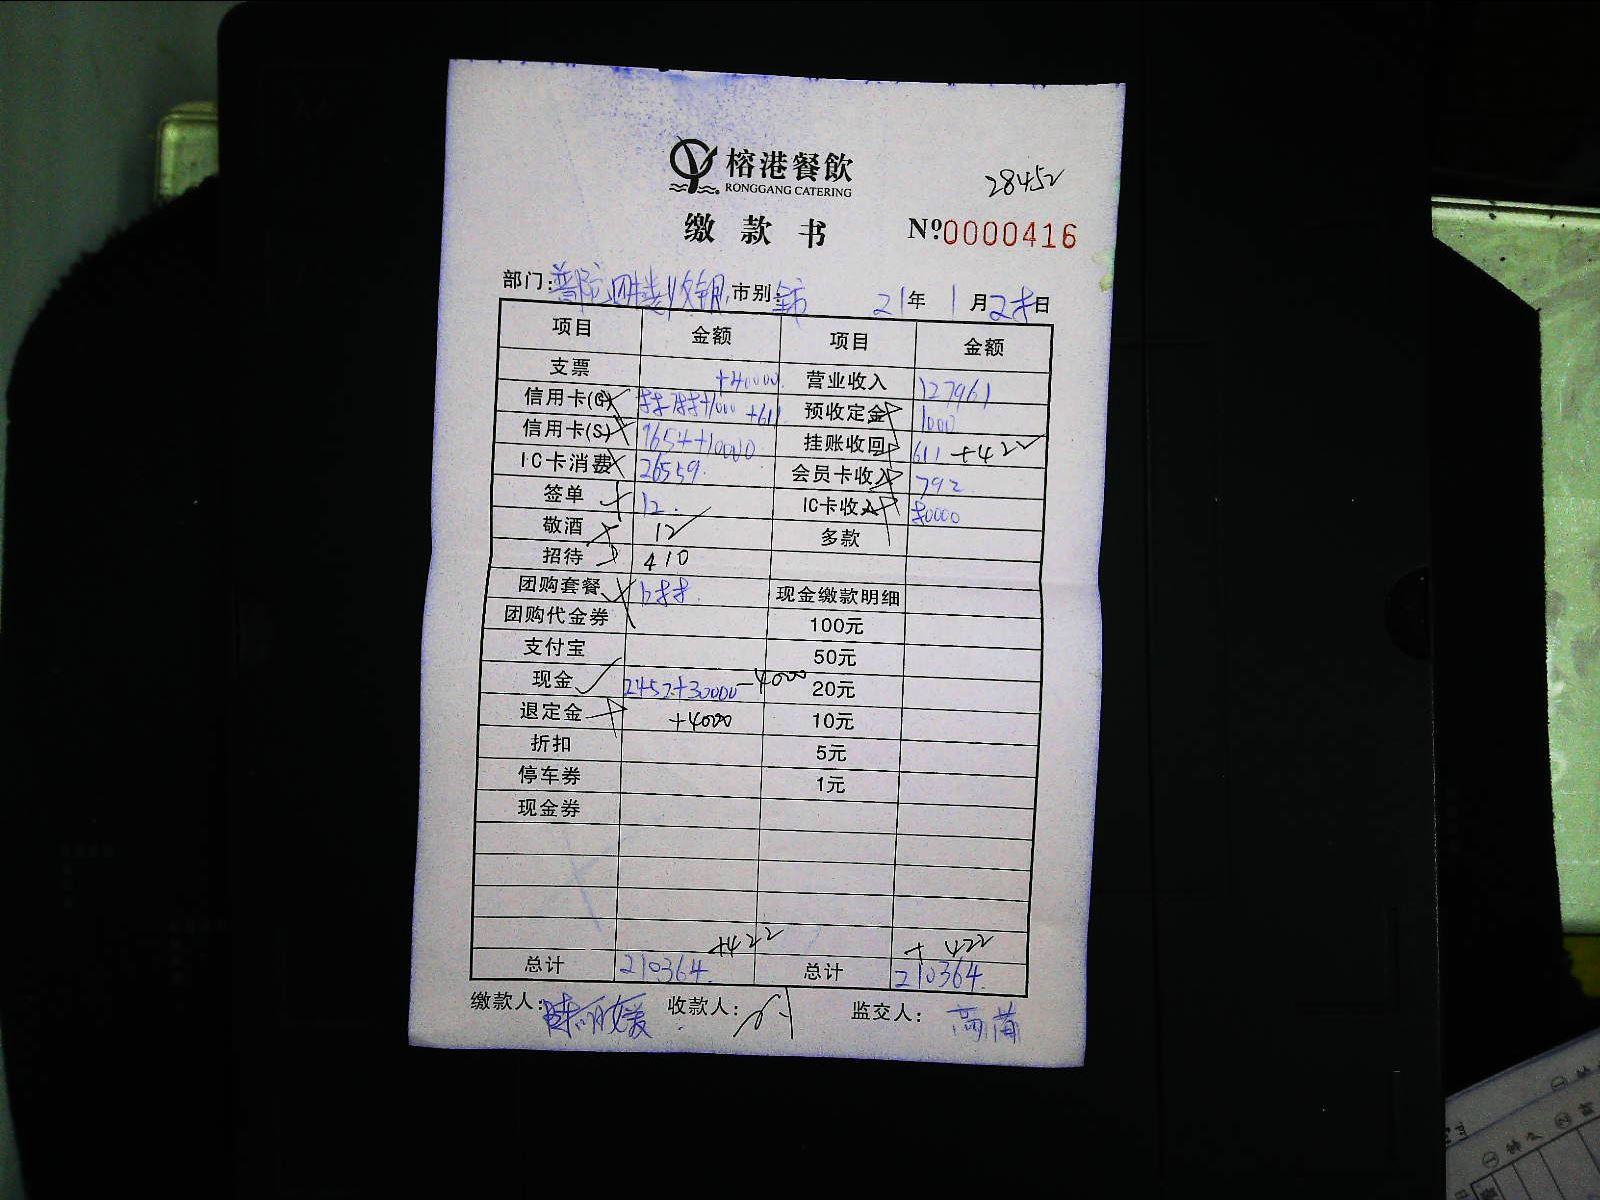 榕港餐飲
RONGGANG CATERING
28452
缴款书 Nº0000416
部门: 普陀四楼收银 市别: 全市 21年 1月 日
项目 金额 项目 金额
支票 +40000 营业收入 127961
信用卡(G) +1000 +611 预收定金 1000
信用卡(S) +10000 挂账收回 611 +422
IC卡消费 26559. 会员卡收入 792
签单 12. IC卡收入
敬酒 12 多款
招待 410
团购套餐 现金缴款明细
团购代金券 100元
支付宝 50元
现金 2452+30000-4000 20元
退定金 +4000 10元
折扣 5元
停车券 1元
现金券
+422 + 422
总计 210364. 总计 210364.
缴款人: 收款人: 监交人: